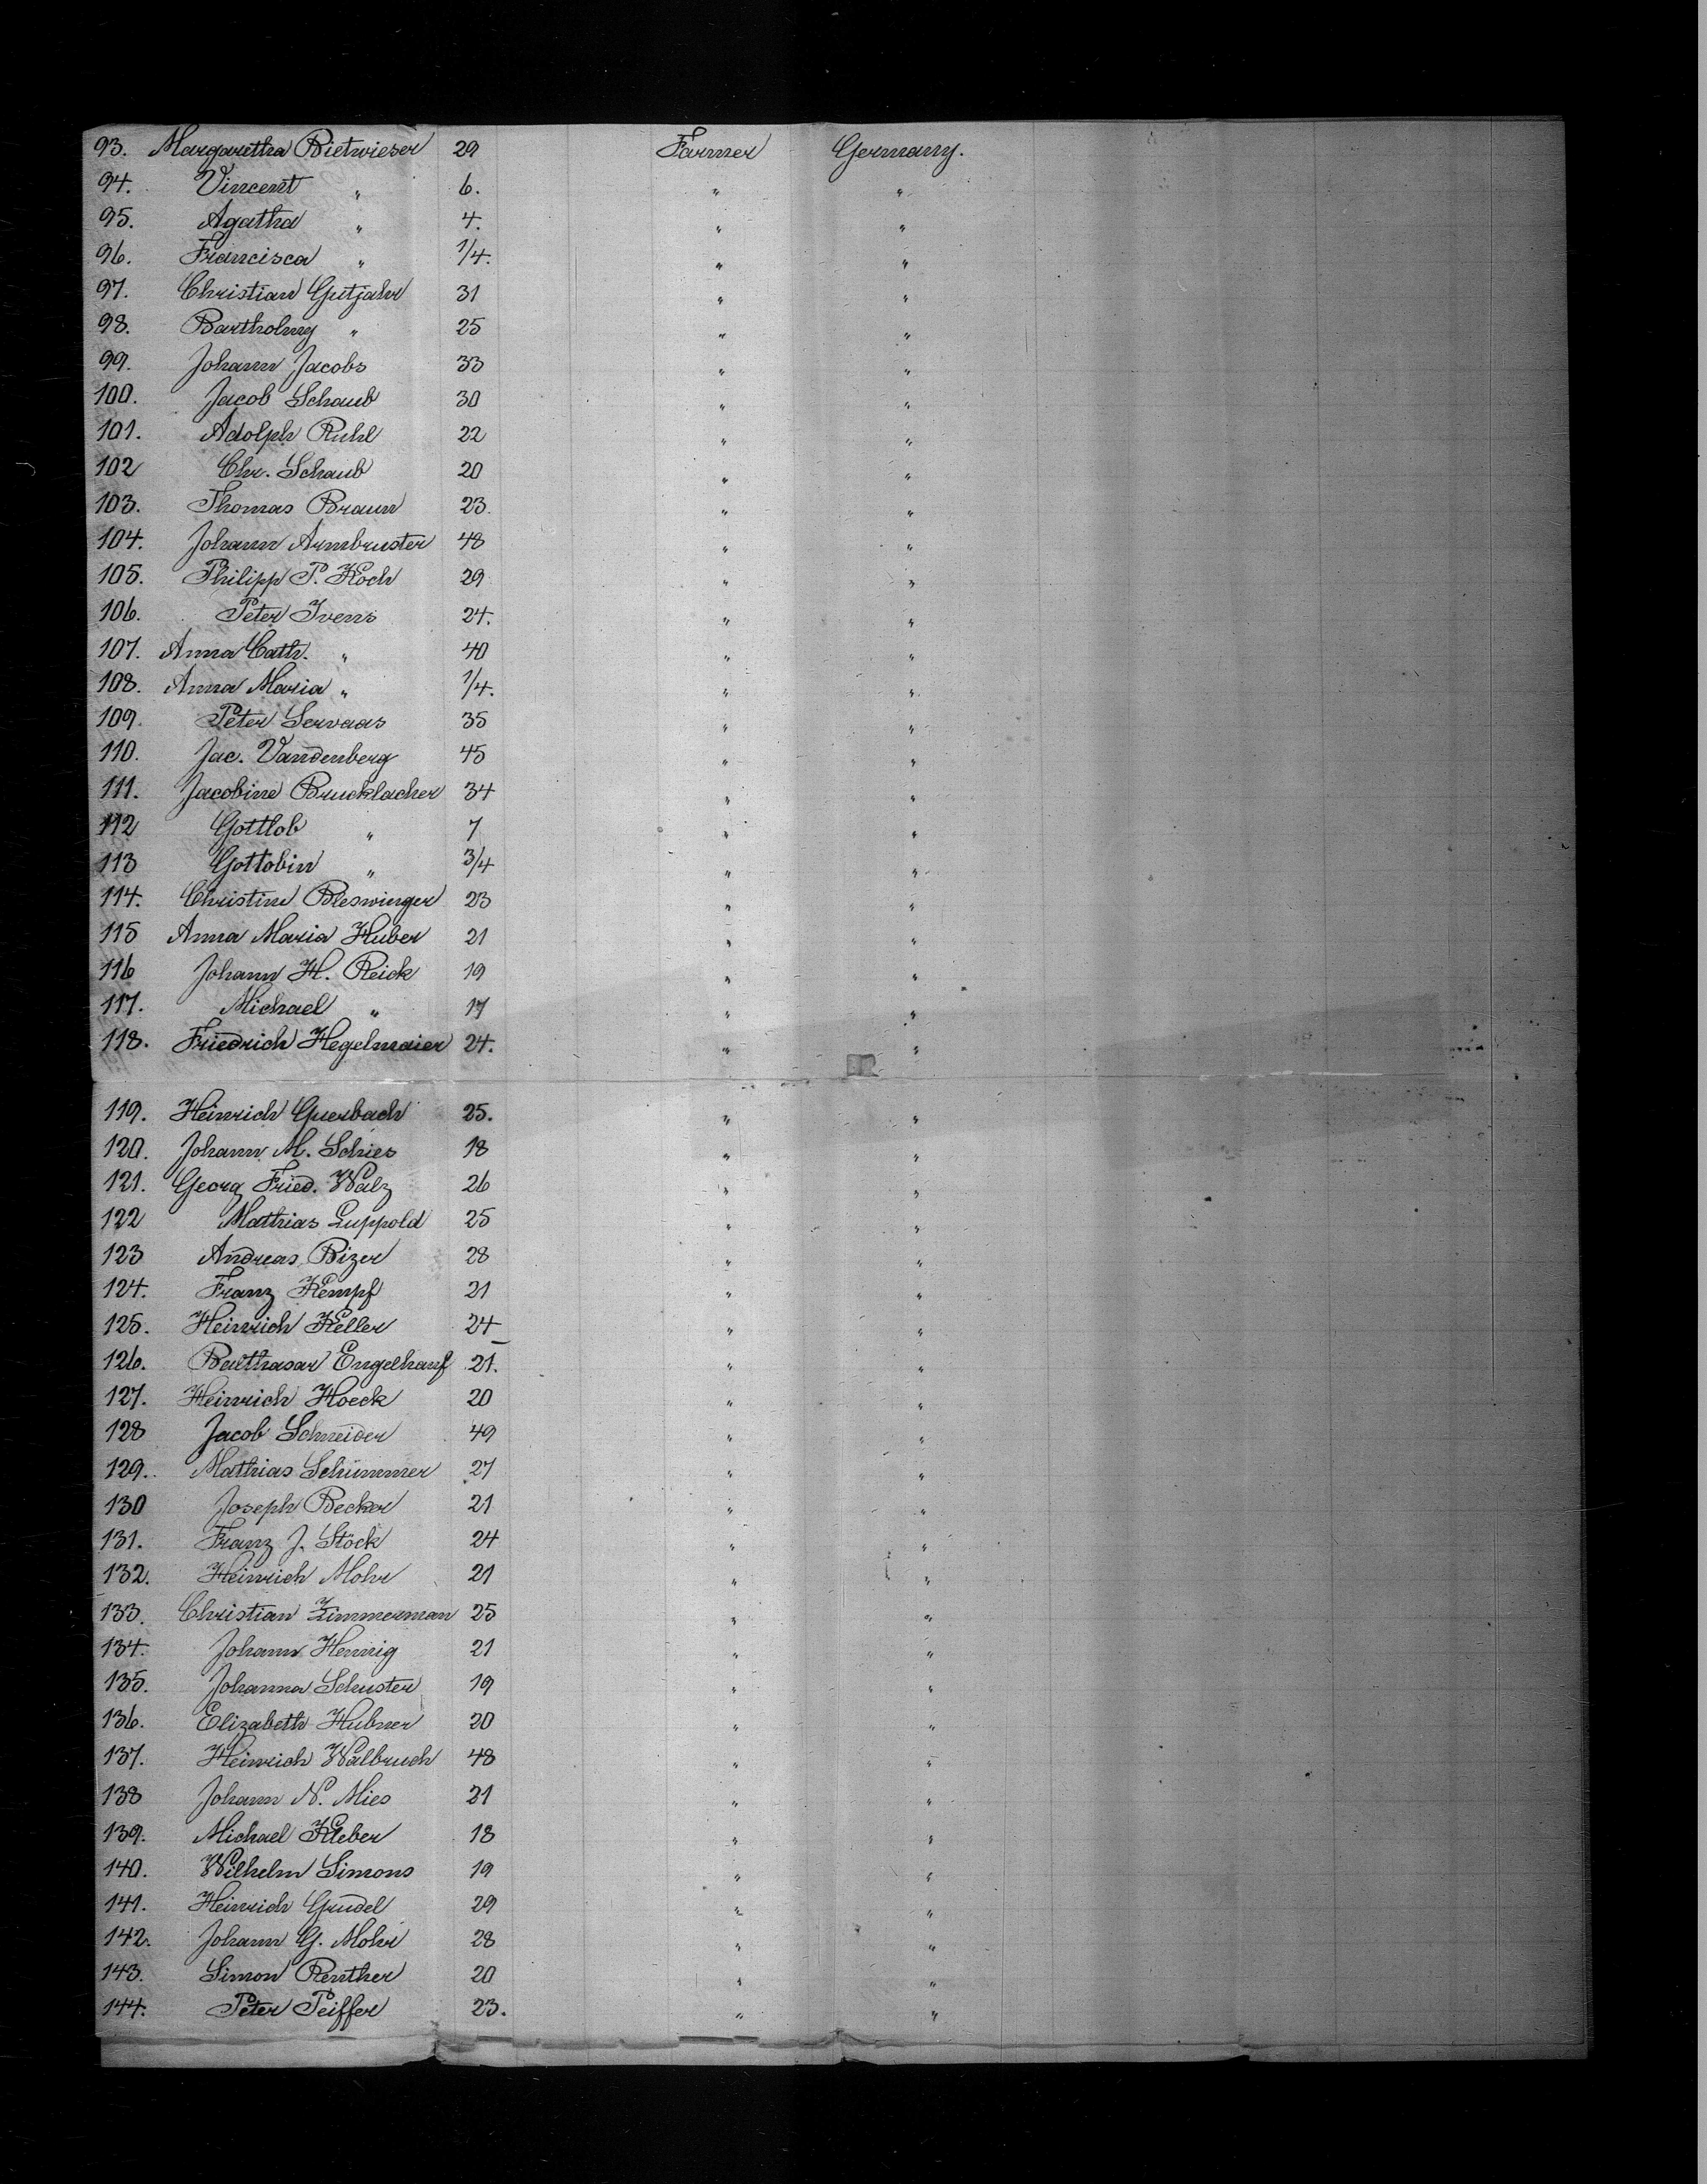 93. Margaretha Bietwieser 29 Farmer Germany.
94. Vincent " 6. " "
95. Agatha " 4. " "
96. Francisca " 1/4. " "
97. Christian Gutjahr 31 " "
98. Bartholmy " 25 " "
99. Johann Jacobs 33 " "
100. Jacob Schaub 30 " "
101. Adolph Ruhl 22 " "
102 Chr. Schaub 20 " "
103. Thomas Braun 23. " "
104. Johann Armbruster 48 " "
105. Philipp P. Koch 29 " "
106. Peter Ivens 24. " "
107. Anna Cath. " 40 " "
108. Anna Maria " 1/4. " "
109. Peter Servaas 35 " "
110. Jac. Vandenberg 45 " "
111. Jacobine Brucklacher 34 " "
112 Gottlob " 7 " "
113 Gottobin " 3/4 " "
114. Christine Bleswinger 23 " "
115 Anna Maria Huber 21 " "
116 Johann H. Reick 19 " "
117. Michael " 17 " "
118. Friedrich Hegelmaier 24. " "
119. Heinrich Guerbach 25. " "
120. Johann M. Schies 18 " "
121. Georg Fried. Walz 26 " "
122 Mathias Luppold 25 " "
123 Andreas Bizer 28 " "
124. Franz Kempf 21 " "
125. Heinrich Keller 24 " "
126. Balthasar Engelhauf 21. " "
127. Heinrich Hoeck 20 " "
128 Jacob Schneider 49 " "
129. Mathias Schümmer 27 " "
130 Joseph Becker 21 " "
131. Franz J. Stöck 24 " "
132. Heinrich Mohr 21 " "
133. Christian Zimmerman 25 " "
134. Johann Hennig 21 " "
135. Johanna Schuster 19 " "
136. Elizabeth Hubner 20 " "
137. Heinrich Walbruch 48 " "
138 Johann N. Mies 21 " "
139. Michael Kleber 18 " "
140. Wilhelm Simons 19 " "
141. Heinrich Grudel 29 " "
142. Johann G. Mohr 28 " "
143. Simon Renther 20 " "
144. Peter Peiffer 23. " "